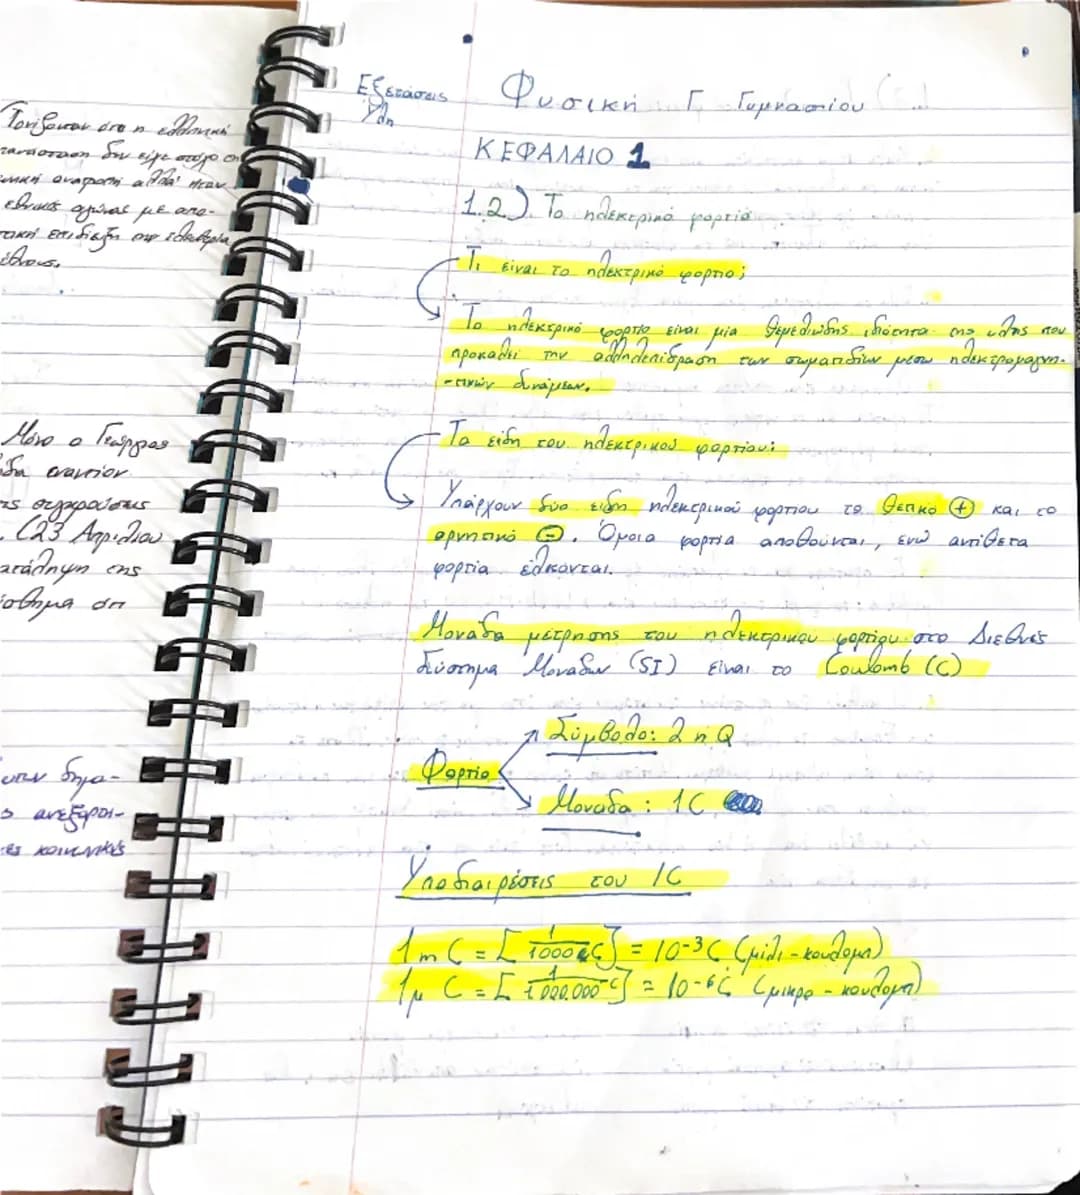 Τονίζονταν ότι η ελληνική
επανάσταση δεν είχε στόχο
ανατροπή αλλά ήταν
εθνικός αγώνας με απο-
επιδίωξη την ελευθερία
έθνους.
Μόνο ο Γεώργιος
εναντίον
συγκρούσεις
(23 Απριλίου
κατάληψη της
ότι
δημα-
ανεξαρτη-
κοινωνικές
Εξετάσεις
Ύλη
Φυσική Γ Γυμνασίου
ΚΕΦΑΛΑΙΟ 1
1.2) Το ηλεκτρικό φορτίο
Τι είναι το ηλεκτρικό φορτίο;
Το ηλεκτρικό φορτίο είναι μία θεμελιώδης ιδιότητα της ύλης που
προκαλεί την αλληλεπίδραση των σωματιδίων μέσω ηλεκτρομαγνη-
-τικών δυνάμεων.
Τα είδη του ηλεκτρικού φορτίου:
Υπάρχουν δύο είδη ηλεκτρικού φορτίου το θετικό + και το
αρνητικό -. Όμοια φορτία απωθούνται, ενώ αντίθετα
φορτία έλκονται.
Μονάδα μέτρησης του ηλεκτρικού φορτίου στο Διεθνές
Σύστημα Μονάδων (SI) είναι το Coulomb (C)
Σύμβολο: 2 ή Q
Φορτίο
Μονάδα : 1C
Υποδιαιρέσεις του 1C
1m C = [1/1000 C] = 10⁻³C (μίλι-κουλόμπ)
1μ C = [1/1000.000 C] = 10⁻⁶C (μικρο-κουλόμπ)